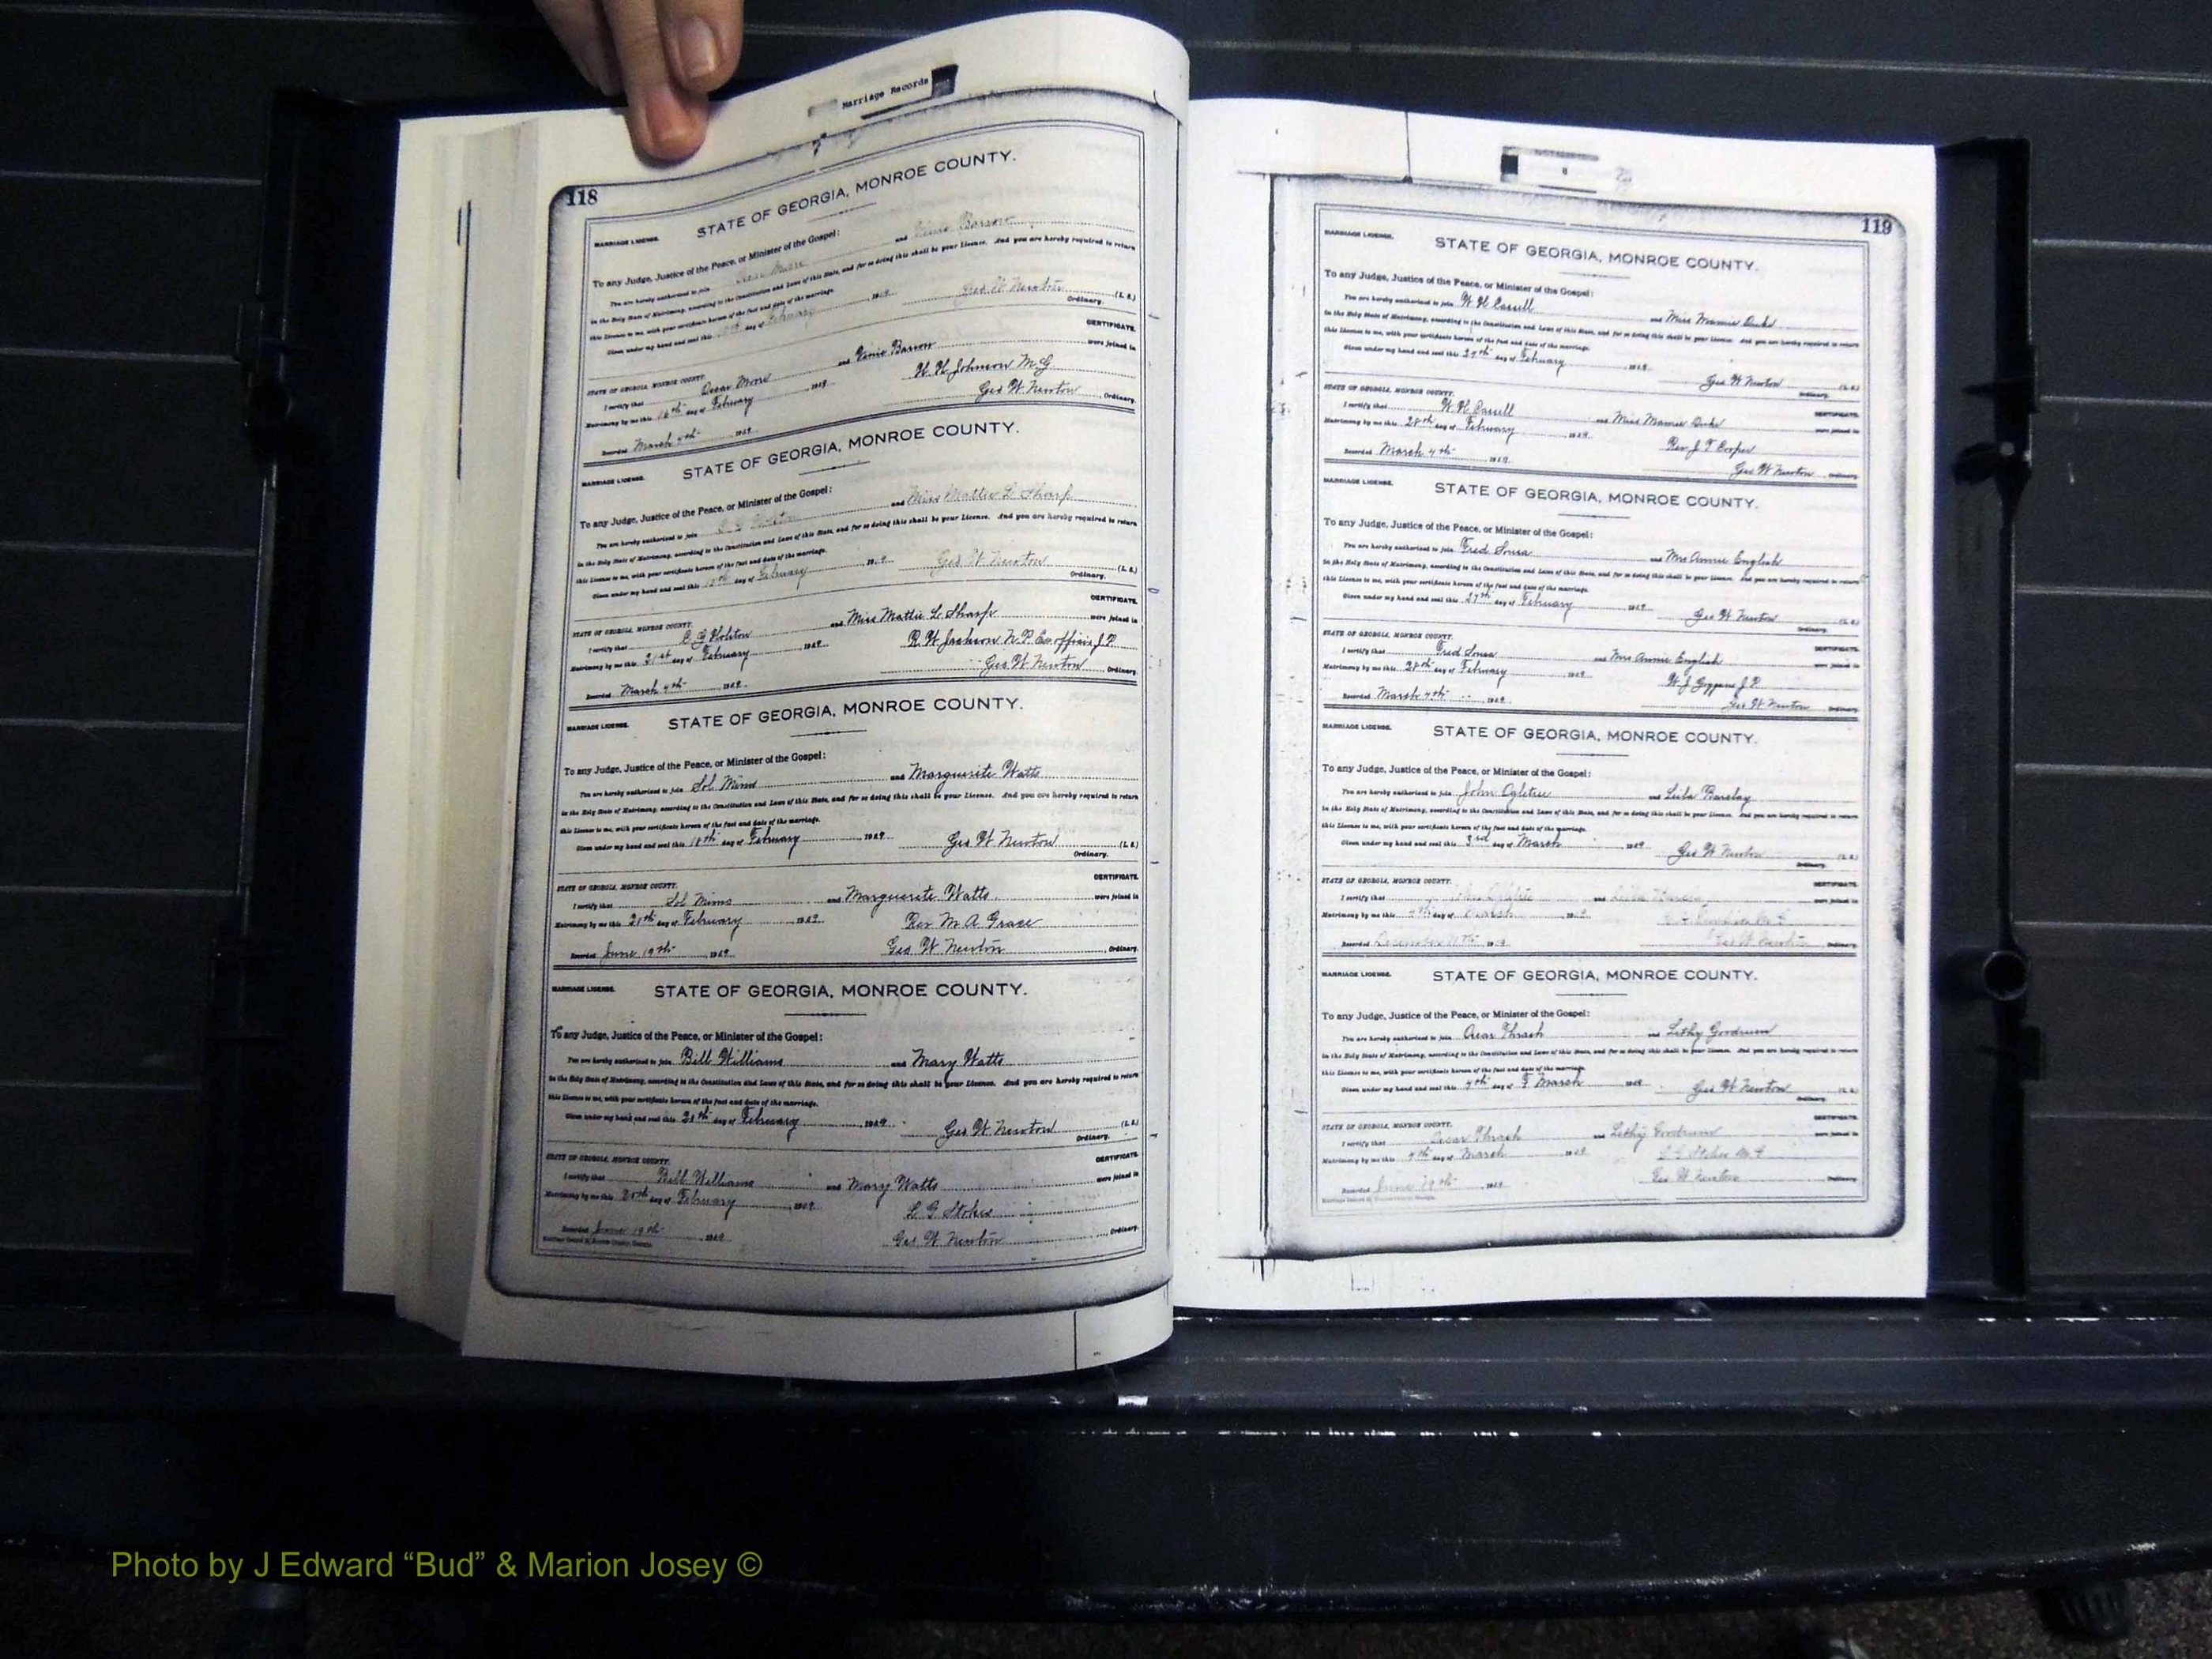 Marriage Records
118
STATE OF GEORGIA, MONROE COUNTY.
MARRIAGE LICENSE.
To any Judge, Justice of the Peace, or Minister of the Gospel:
You are hereby authorized to join Oscar Moore and Vinie Barrow
in the Holy State of Matrimony, according to the Constitution and Laws of this State, and for so doing this shall be your License. And you are hereby required to return
this License to me, with your certificate hereon of the fact and date of the marriage.
Given under my hand and seal this day of February
Geo W Newton (L. S.)
Ordinary.
CERTIFICATE.
STATE OF GEORGIA, MONROE COUNTY.
I certify that Oscar Moore and Vinie Barrow were joined in
Matrimony by me this 16th day of February, 1909 W H Johnson M.G.
Recorded March 4th 1909 Geo W Newton, Ordinary.
MARRIAGE LICENSE.
STATE OF GEORGIA, MONROE COUNTY.
To any Judge, Justice of the Peace, or Minister of the Gospel:
You are hereby authorized to join and Miss Mattie L Sharp
in the Holy State of Matrimony, according to the Constitution and Laws of this State, and for so doing this shall be your License. And you are hereby required to return
this License to me, with your certificate hereon of the fact and date of the marriage.
Given under my hand and seal this day of February, 1909 Geo W Newton (L. S.)
Ordinary.
CERTIFICATE.
STATE OF GEORGIA, MONROE COUNTY.
I certify that C G Holston and Miss Mattie L Sharp were joined in
Matrimony by me this 21st day of February, 1909 R W Jackson N.P. Ex. officio J.P.
Recorded March 4th, 1909. Geo W Newton Ordinary.
MARRIAGE LICENSE.
STATE OF GEORGIA, MONROE COUNTY.
To any Judge, Justice of the Peace, or Minister of the Gospel:
You are hereby authorized to join Sol Mims and Marguerite Watts
in the Holy State of Matrimony, according to the Constitution and Laws of this State, and for so doing this shall be your License. And you are hereby required to return
this License to me, with your certificate hereon of the fact and date of the marriage.
Given under my hand and seal this day of February, 1909 Geo W Newton (L. S.)
Ordinary.
CERTIFICATE.
STATE OF GEORGIA, MONROE COUNTY.
I certify that Sol Mims and Marguerite Watts were joined in
Matrimony by me this 21st day of February 1909 Rev M A Grace
Recorded June 19th, 1909 Geo W Newton, Ordinary.
MARRIAGE LICENSE.
STATE OF GEORGIA, MONROE COUNTY.
To any Judge, Justice of the Peace, or Minister of the Gospel:
You are hereby authorized to join Bill Williams and Mary Watts
in the Holy State of Matrimony, according to the Constitution and Laws of this State, and for so doing this shall be your License. And you are hereby required to return
this License to me, with your certificate hereon of the fact and date of the marriage.
Given under my hand and seal this day of February 1909 Geo W Newton (L. S.)
Ordinary.
CERTIFICATE.
STATE OF GEORGIA, MONROE COUNTY.
I certify that Bill Williams and Mary Watts were joined in
Matrimony by me this day of February, 1909 L G Stokes
Recorded June 19th, 1909 Geo W Newton, Ordinary.
119
MARRIAGE LICENSE.
STATE OF GEORGIA, MONROE COUNTY.
To any Judge, Justice of the Peace, or Minister of the Gospel:
You are hereby authorized to join W H and Miss Mamie Duke
in the Holy State of Matrimony, according to the Constitution and Laws of this State, and for so doing this shall be your License. And you are hereby required to return
this License to me, with your certificate hereon of the fact and date of the marriage.
Given under my hand and seal this 27th day of February, 1909
Geo W Newton (L. S.)
Ordinary.
STATE OF GEORGIA, MONROE COUNTY.
CERTIFICATE.
I certify that W H and Miss Mamie Duke were joined in
Matrimony by me this 28th day of February, 1909 Rev J T Cooper
Recorded March 4th, 1909. Geo W Newton Ordinary.
MARRIAGE LICENSE.
STATE OF GEORGIA, MONROE COUNTY.
To any Judge, Justice of the Peace, or Minister of the Gospel:
You are hereby authorized to join Fred Sousa and Mrs Annie English
in the Holy State of Matrimony, according to the Constitution and Laws of this State, and for so doing this shall be your License. And you are hereby required to return
this License to me, with your certificate hereon of the fact and date of the marriage.
Given under my hand and seal this 27th day of February, 1909 Geo W Newton (L. S.)
Ordinary.
STATE OF GEORGIA, MONROE COUNTY.
CERTIFICATE.
I certify that Fred Sousa and Mrs Annie English were joined in
Matrimony by me this 28th day of February 1909 W J J.P.
Recorded March 4th, 1909. Geo W Newton Ordinary.
MARRIAGE LICENSE.
STATE OF GEORGIA, MONROE COUNTY.
To any Judge, Justice of the Peace, or Minister of the Gospel:
You are hereby authorized to join John Ogletree and Leila Barclay
in the Holy State of Matrimony, according to the Constitution and Laws of this State, and for so doing this shall be your License. And you are hereby required to return
this License to me, with your certificate hereon of the fact and date of the marriage.
Given under my hand and seal this 3rd day of March, 1909 Geo W Newton (L. S.)
Ordinary.
STATE OF GEORGIA, MONROE COUNTY.
CERTIFICATE.
I certify that John Ogletree and were joined in
Matrimony by me this day of March 1909
Recorded December Geo W Newton Ordinary.
MARRIAGE LICENSE.
STATE OF GEORGIA, MONROE COUNTY.
To any Judge, Justice of the Peace, or Minister of the Gospel:
You are hereby authorized to join Oscar Thrash and Lethy Goodrum
in the Holy State of Matrimony, according to the Constitution and Laws of this State, and for so doing this shall be your License. And you are hereby required to return
this License to me, with your certificate hereon of the fact and date of the marriage.
Given under my hand and seal this 4th day of March 1909 Geo W Newton (L. S.)
Ordinary.
STATE OF GEORGIA, MONROE COUNTY.
CERTIFICATE.
I certify that Oscar Thrash and Lethy Goodrum were joined in
Matrimony by me this 4th day of March 1909 L G Stokes M G
Recorded June 19th, 1909 Geo W Newton Ordinary.
Photo by J Edward “Bud” & Marion Josey ©